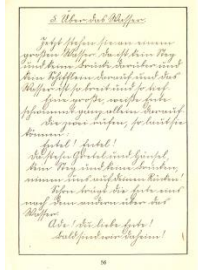 5. Über das Wasser.
Jetzt stehen sie an einem
großen Wasser. Da ist kein Steg
und keine Brücke darüber und
kein Schifflein darauf und das
Wasser ist so breit und so tief.
Eine große, weiße Ente
schwimmt ganz allein darauf.
Die wir rufen, so laut wir
können:
Entel! Entel!
Da stehn Gretel und Hänsel,
kein Steg und keine Brücken,
nimm uns auf deinen Rücken!
Schon trägt die Ente eins
nach dem andern über das
Wasser.
Ade! Du liebe Ente!
Bald sind wir daheim!